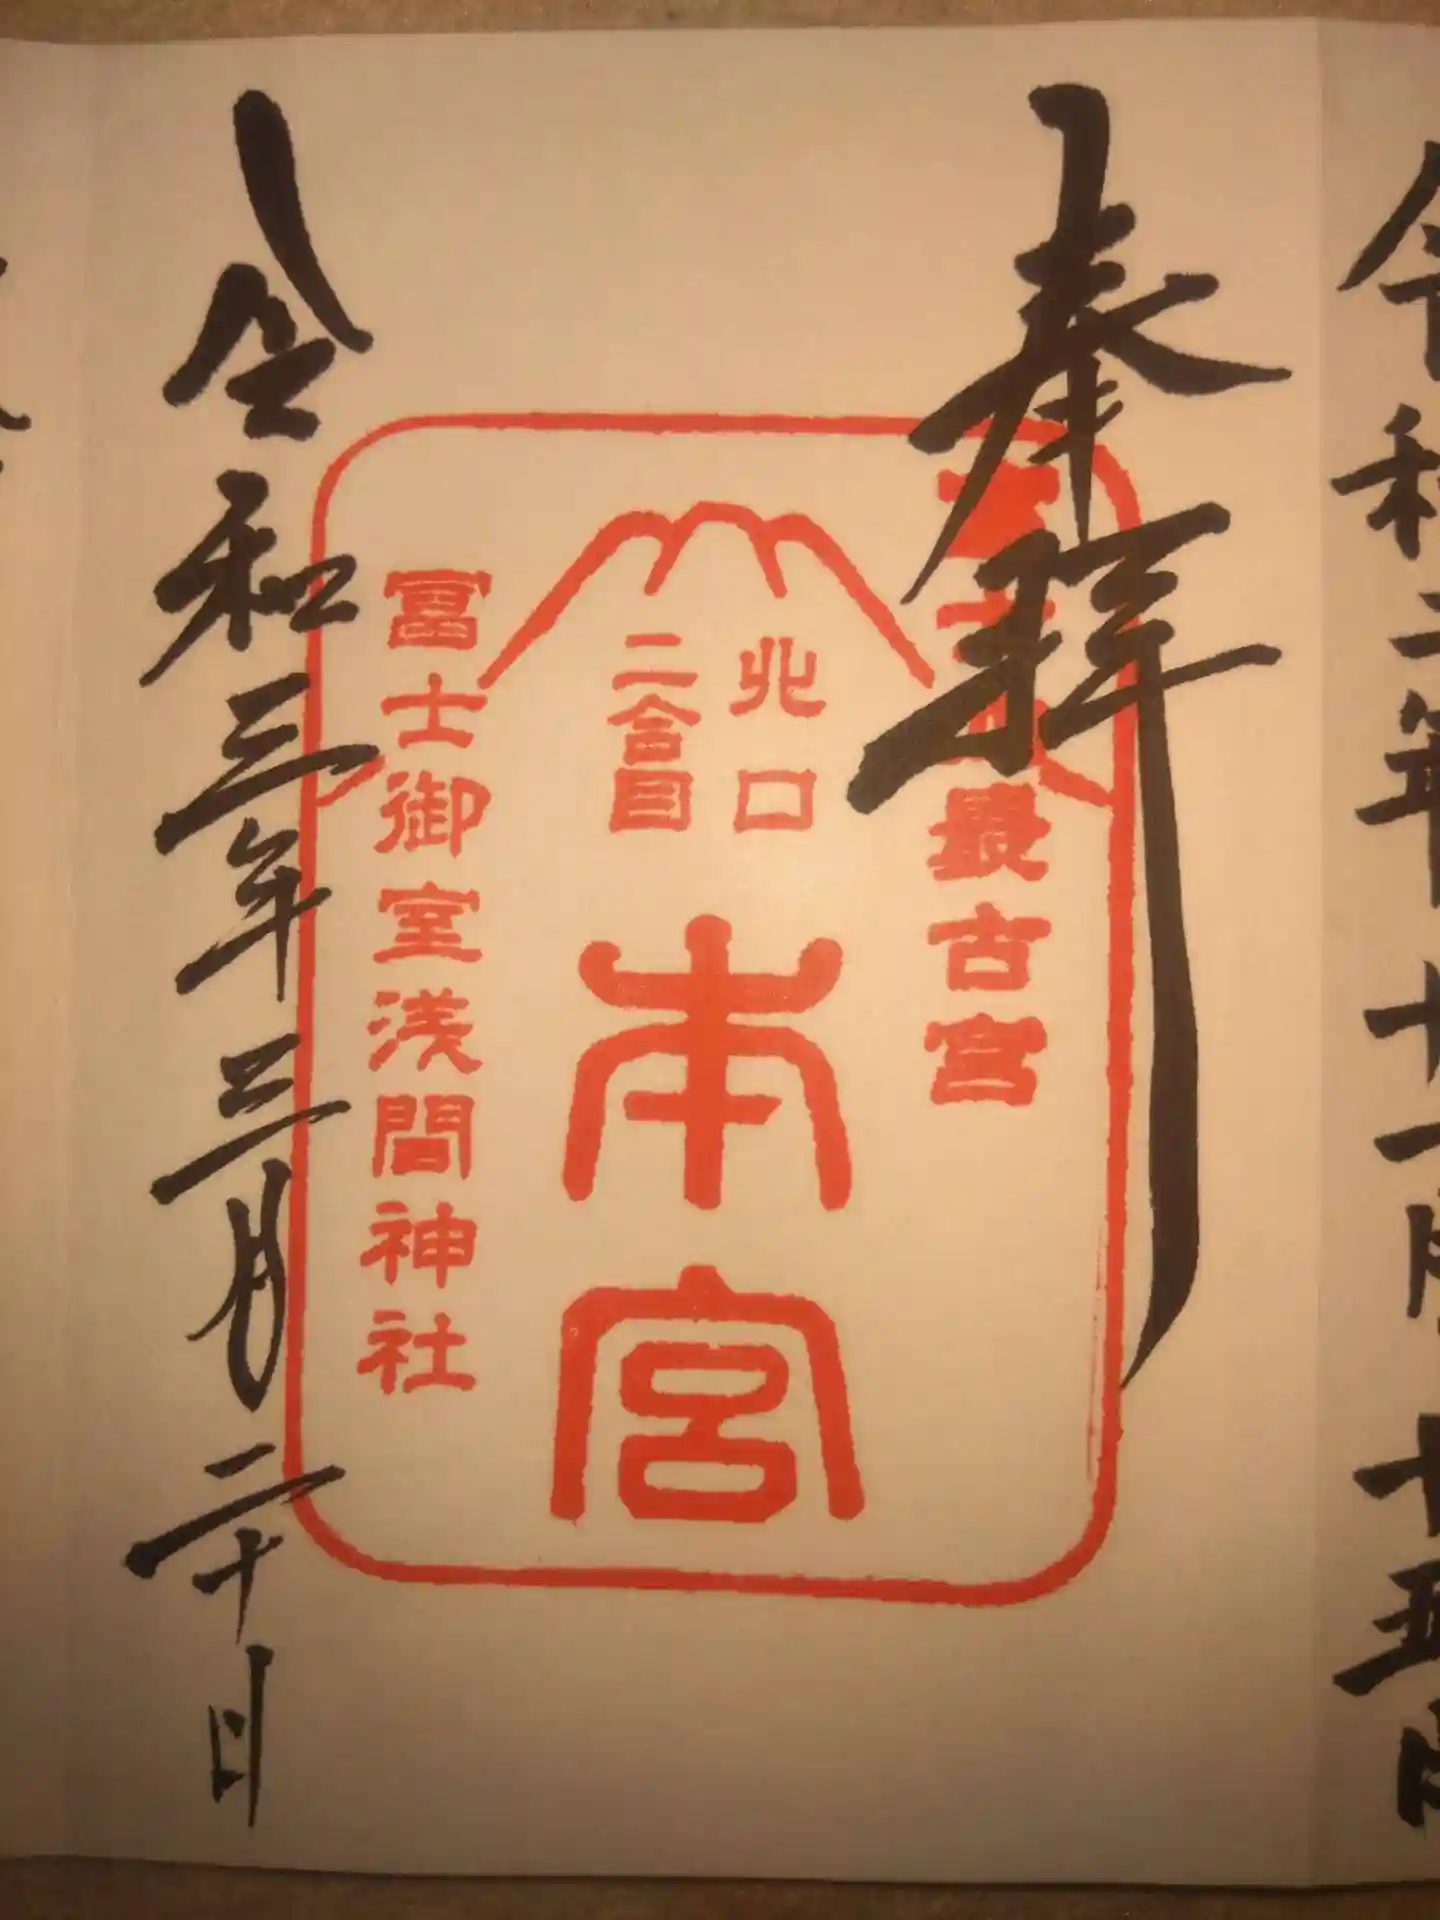 奉拝
最古宮
北口
二合目
本宮
冨士御室浅間神社
令和三年三月二十日
令和二年十一月十五日